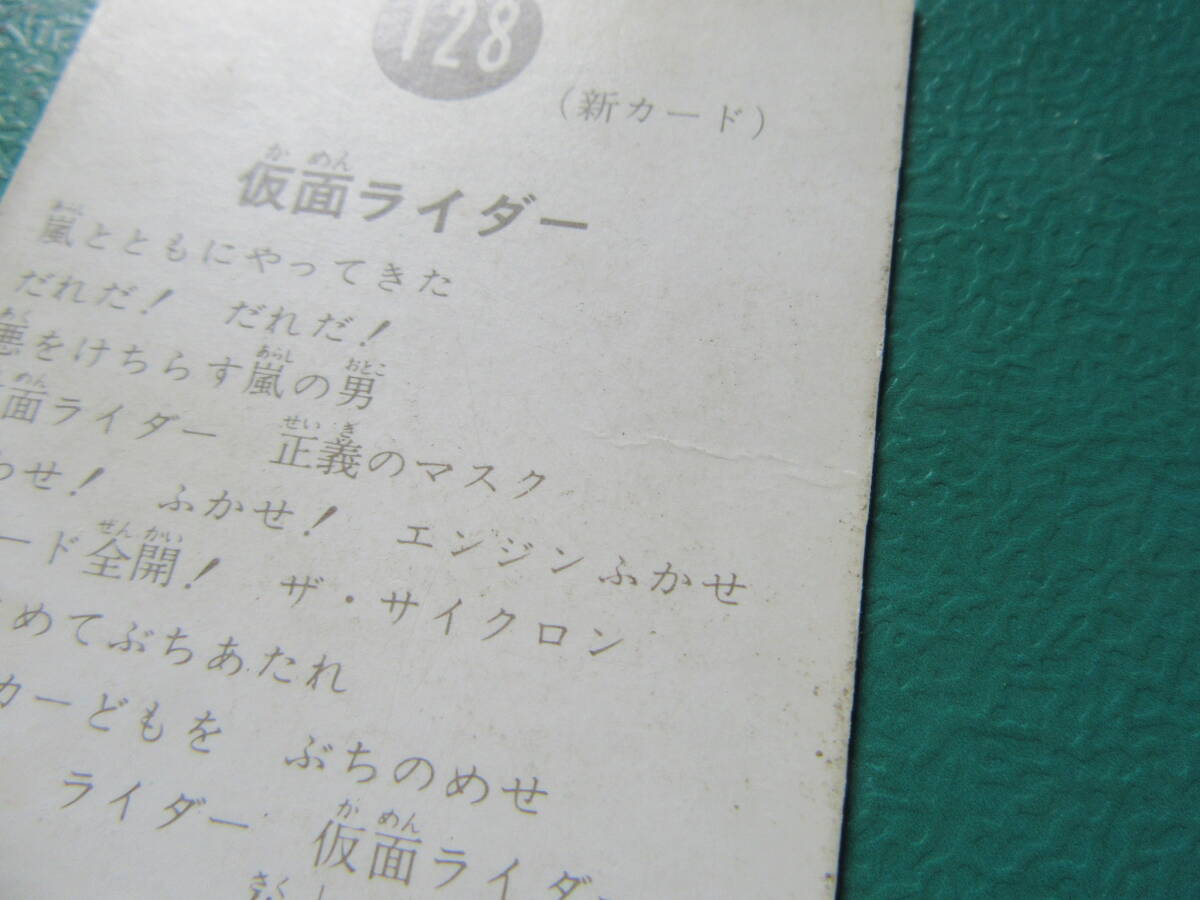 128
(新カード)
仮面ライダー
嵐とともにやってきた
だれだ! だれだ!
悪をけちらす嵐の男
面ライダー 正義のマスク
わせ! ふかせ! エンジンふかせ
ード全開! ザ・サイクロン
めてぶちあたれ
カーどもを ぶちのめせ
ライダー 仮面ライダ